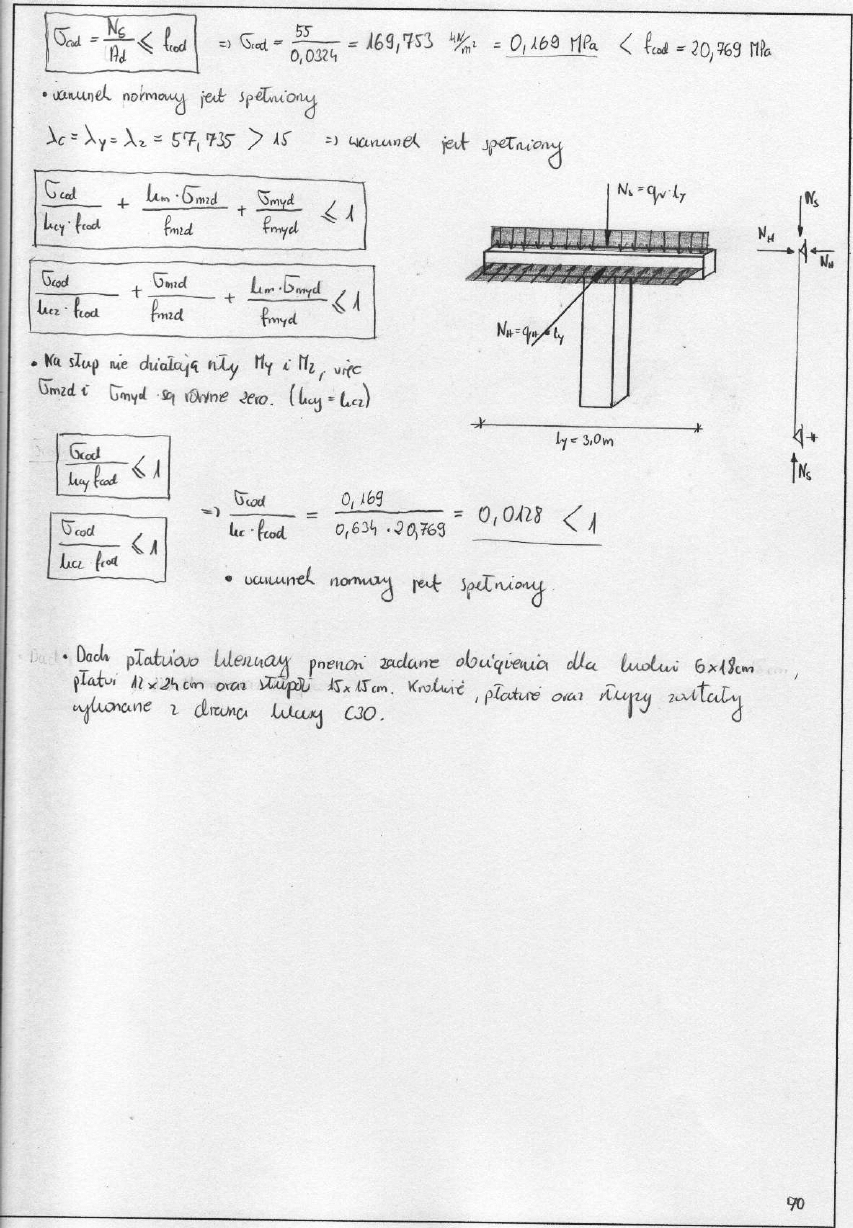 σcod = Ns/Ad ≤ fcod => σcod = 55/0,0324 = 169,753 kN/m² = 0,169 MPa < fcod = 20,769 MPa
• warunek normowy jest spełniony
λc = λy = λz = 57,735 > 15 => warunek jest spełniony
σcod/kcy · fcod + km · σmzd/fmzd + σmyd/fmyd ≤ 1
σcod/kcz · fcod + σmzd/fmzd + km · σmyd/fmyd ≤ 1
Ns = qv · ly
NH = qH · ly
ly = 3,0m
Ns
NH
NH
Ns
• Na słup nie działają siły My i Mz, więc
σmzd i σmyd są równe zero. (kcy = kcz)
σcod/kcy fcod ≤ 1
σcod/kcz fcod ≤ 1
=> σcod/kc · fcod = 0,169/0,634 · 20,769 = 0,0128 < 1
• warunek normowy jest spełniony.
• Dach płatwiowo kleszczowy przenosi zadane obciążenia dla krokwi 6x18cm,
płatwi 12x24cm oraz słupów 15x15cm. Krokwie, płatwie oraz słupy zostały
wykonane z drewna klasy C30.
90